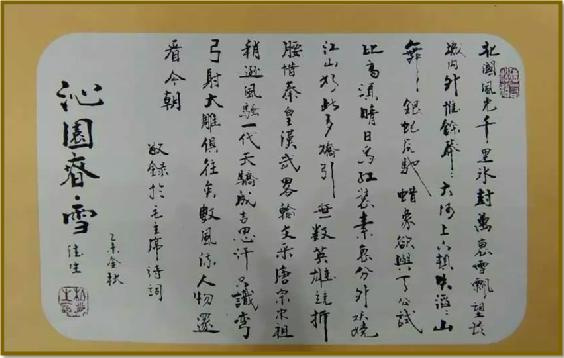 北國風光千里冰封萬裏雪飄望長
城内外惟餘莽莽大河上下頓失滔滔山
舞銀蛇原馳蜡象欲與天公試
比高須晴日看紅裝素裹分外妖嬈
江山如此多嬌引無數英雄競折
腰惜秦皇漢武略輸文采唐宗宋祖
稍遜風騷一代天驕成吉思汗只識彎
弓射大雕俱往矣數風流人物還
看今朝
敬錄於毛主席詩詞
乙未金秋
沁園春雪
佳生